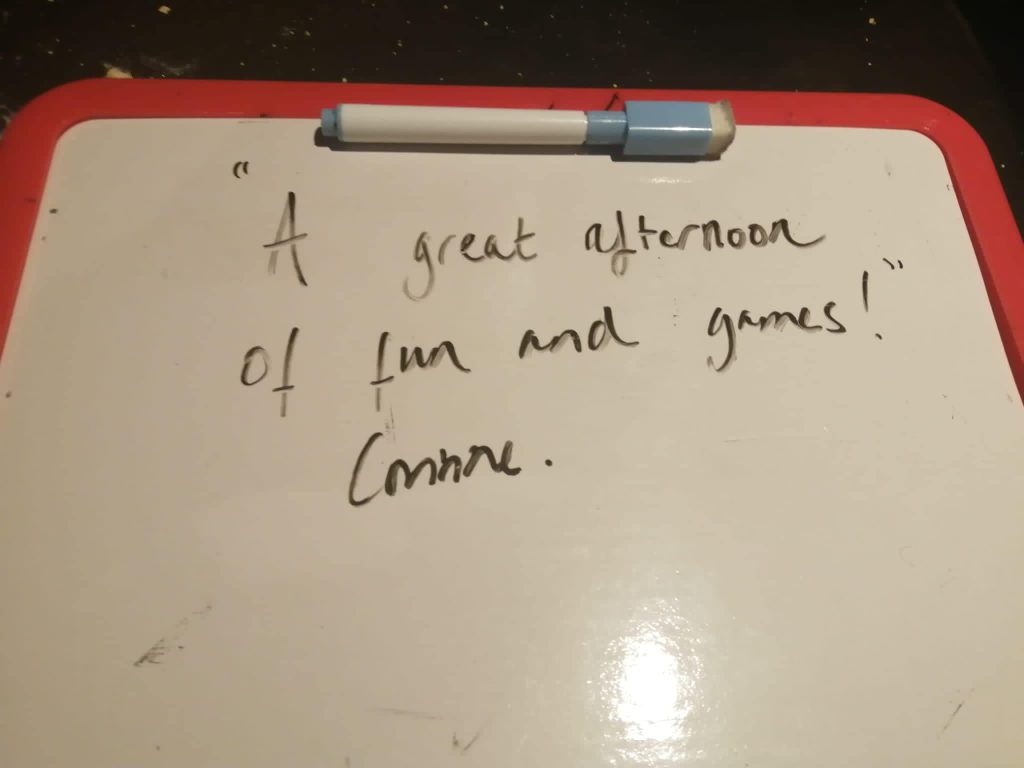 "
A great afternoon
of fun and games!"